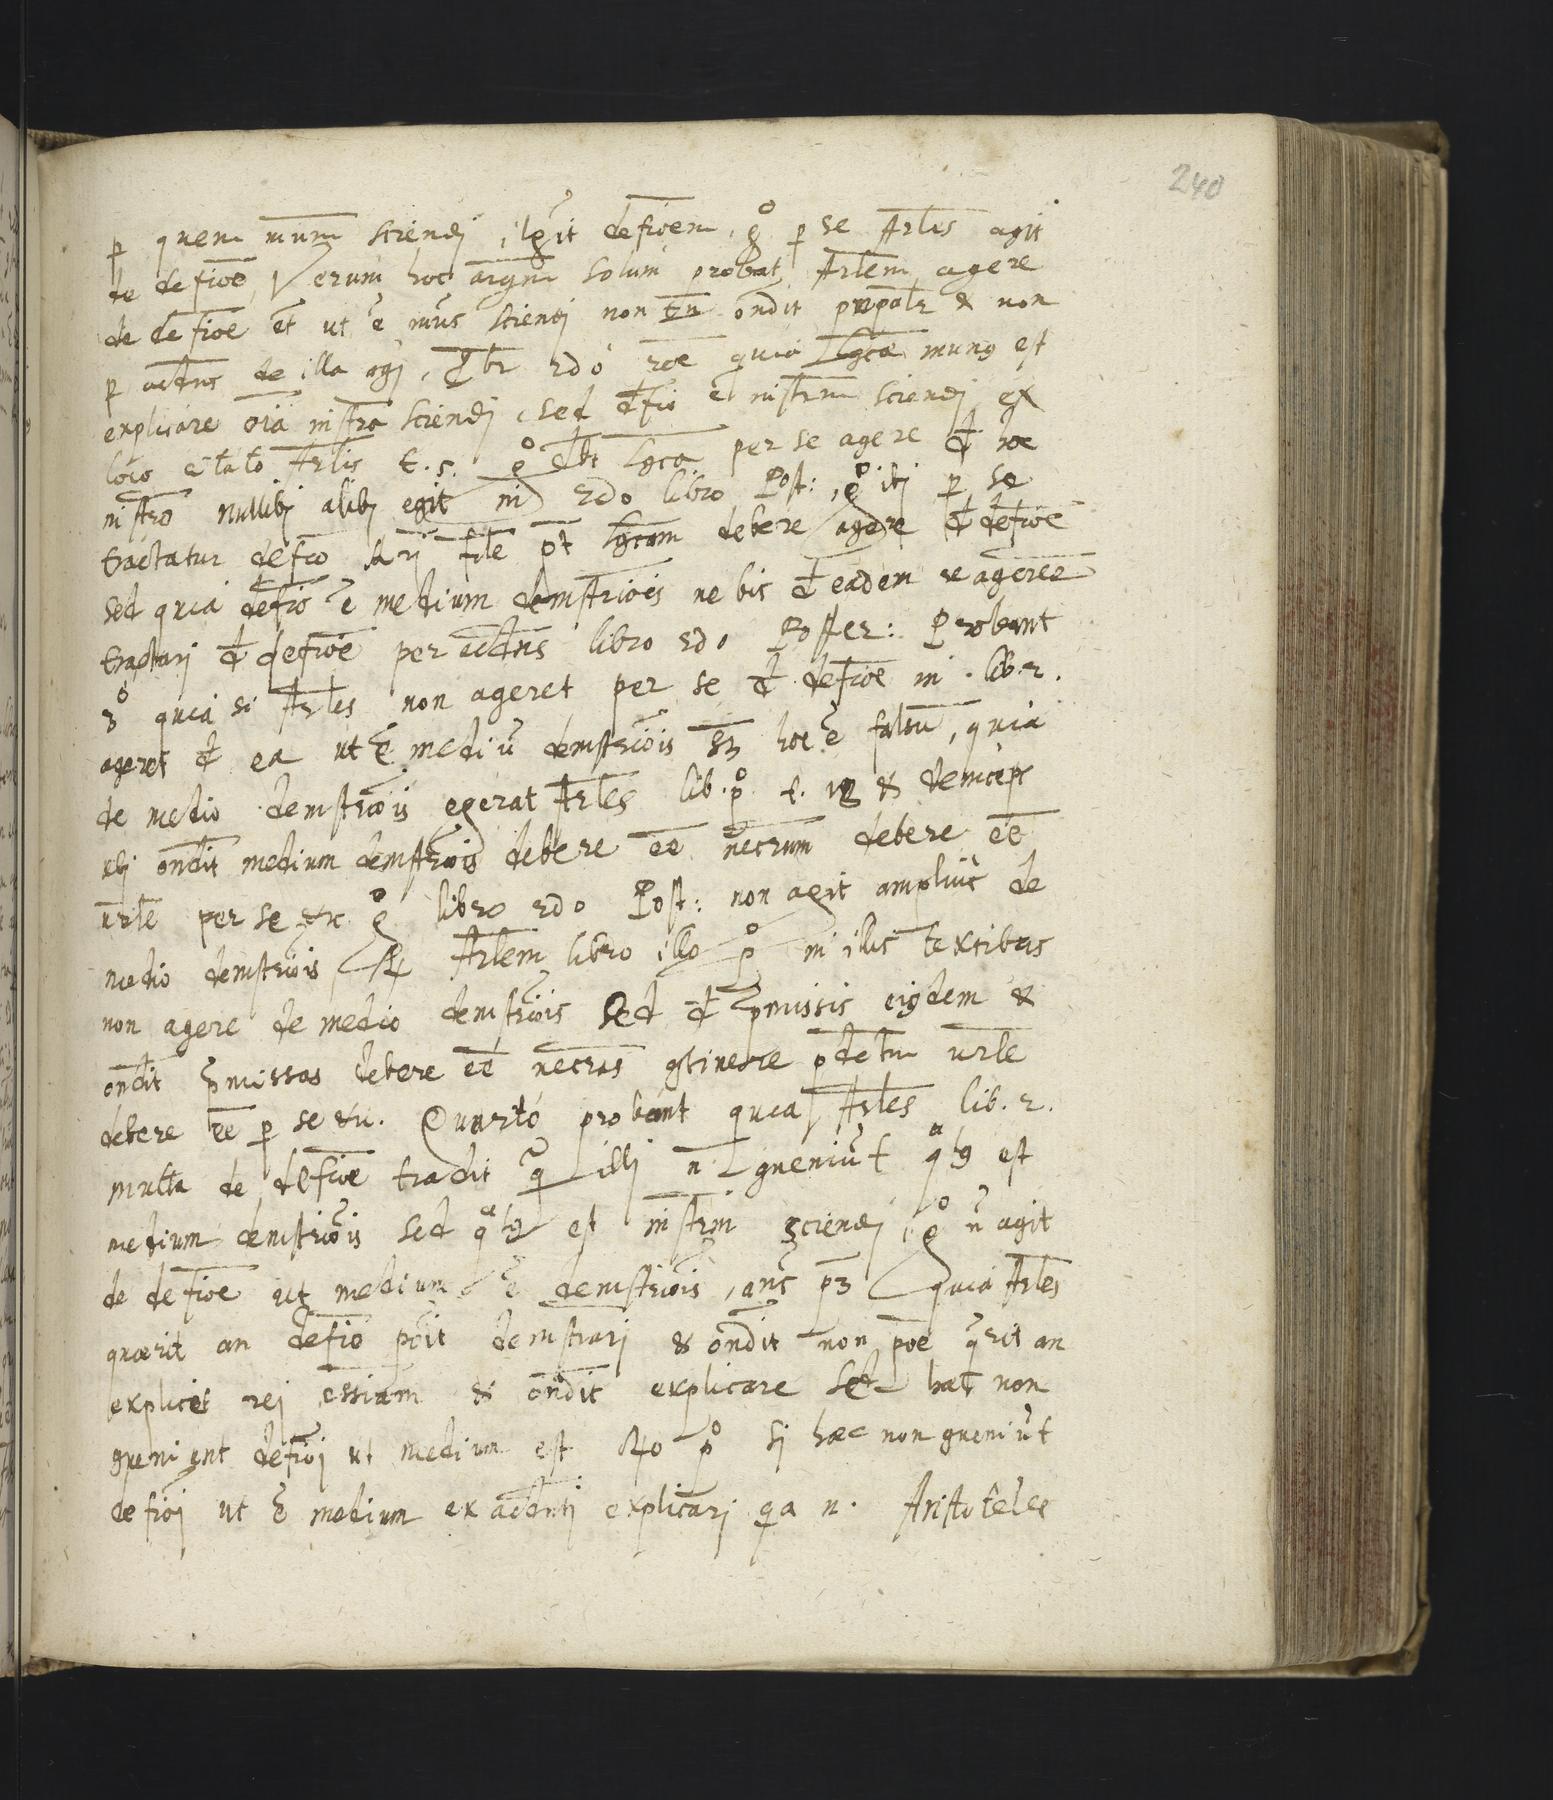 240
p quem mum̄ sciendi, it defioem, go p se Arles agit
de defioe, Verum hoc argm̄ solum probat Arlem agere
de defioe et ut ē mus sciendi non tn̄ ondit prnpalr & non
p acdns de illa agi, 2do roe quia Lgcæ munq est
explicare oia nistra sciendi, sed dfio ē nistrum sciendi ex
loco citato Arlis t. 5. go dbt Lgca per se agere d hoc
nistro nullibi alibi egit ni 2do libro Post:, go ibi p se
tractatur defio Lgcam debere agere d defioe
sed quia defio ē medium demstriois ne bis d eadem re ageree
tractari d defioe per acdns libro 2do Poster: Probant
3o quia si Arles non ageret per se d defioe in lib. 2.
ageret d ea ut ē mediū demstriois s3 hoc ē falsū, quia
de medio demstriois egerat Arles lib. po t. & deinceps
ubi ondit medium demstriois debere ee necrium debere ee
urle per se &c go libro 2do Post: non agit amplius de
medio demstriois Arlem libro illo po in ilis textibus
non agere de medio demstriois Sed d pmissis eiqdem &
ondit pmissas debere ee necras qtinere pdctm urle
debere ee p se &c. Quartó probant quia Arles lib. 2.
multa de defioe tradit q illi n qveniūt est
medium demstriois sed est instrm sciendi, go n̄ agit
de defioe ut medium ē demstriois, ans p3 quia Arles
quærit an defio poit demstrari & ondit non poe qrit an
explicet rei essiam & ondit explicare Sed hæc non
qveniunt defioi ut medium est po Si hæc non qveniūt
defioi ut ē medium ex acdnti explicari qa n. Aristoteles